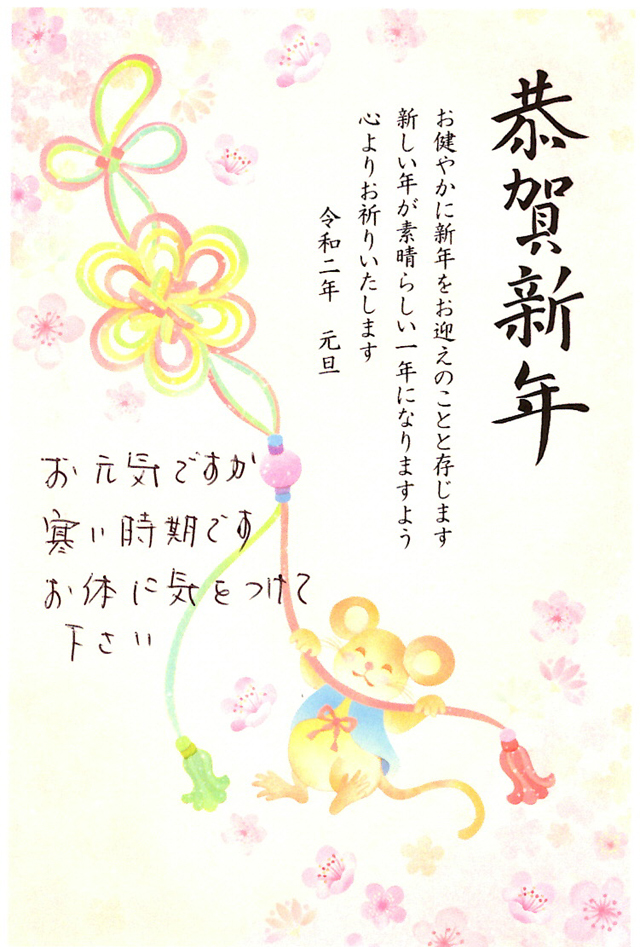 恭賀新年
お健やかに新年をお迎えのことと存じます
新しい年が素晴らしい一年になりますよう
心よりお祈りいたします
令和二年　元旦
お元気ですか
寒い時期です
お体に気をつけて
下さい